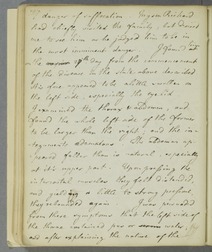 danger of suffocation. Surgeon Prichard
had chiefly visited the family, but sent
me to see him as he judged him to be in
the most imminent danger. I found at
the 9th day from the commencement
of the disease in the state above described
His face appeared to be a little swollen on
the left side, especially the eyelid
I examined the thorax & abdomen, and
found the whole left side of the former
to be larger than the right, and the in-
teguments œdematous. The abdomen ap-
peared fuller than is natural, especially
at its upper part. Upon pressing the
intercostal muscles they felt distended,
and yielding a little to strong pressure
they rebounded again. I was persuaded
from these symptoms that the left side of
the thorax contained pus or water, so
as after explaining the nature of the